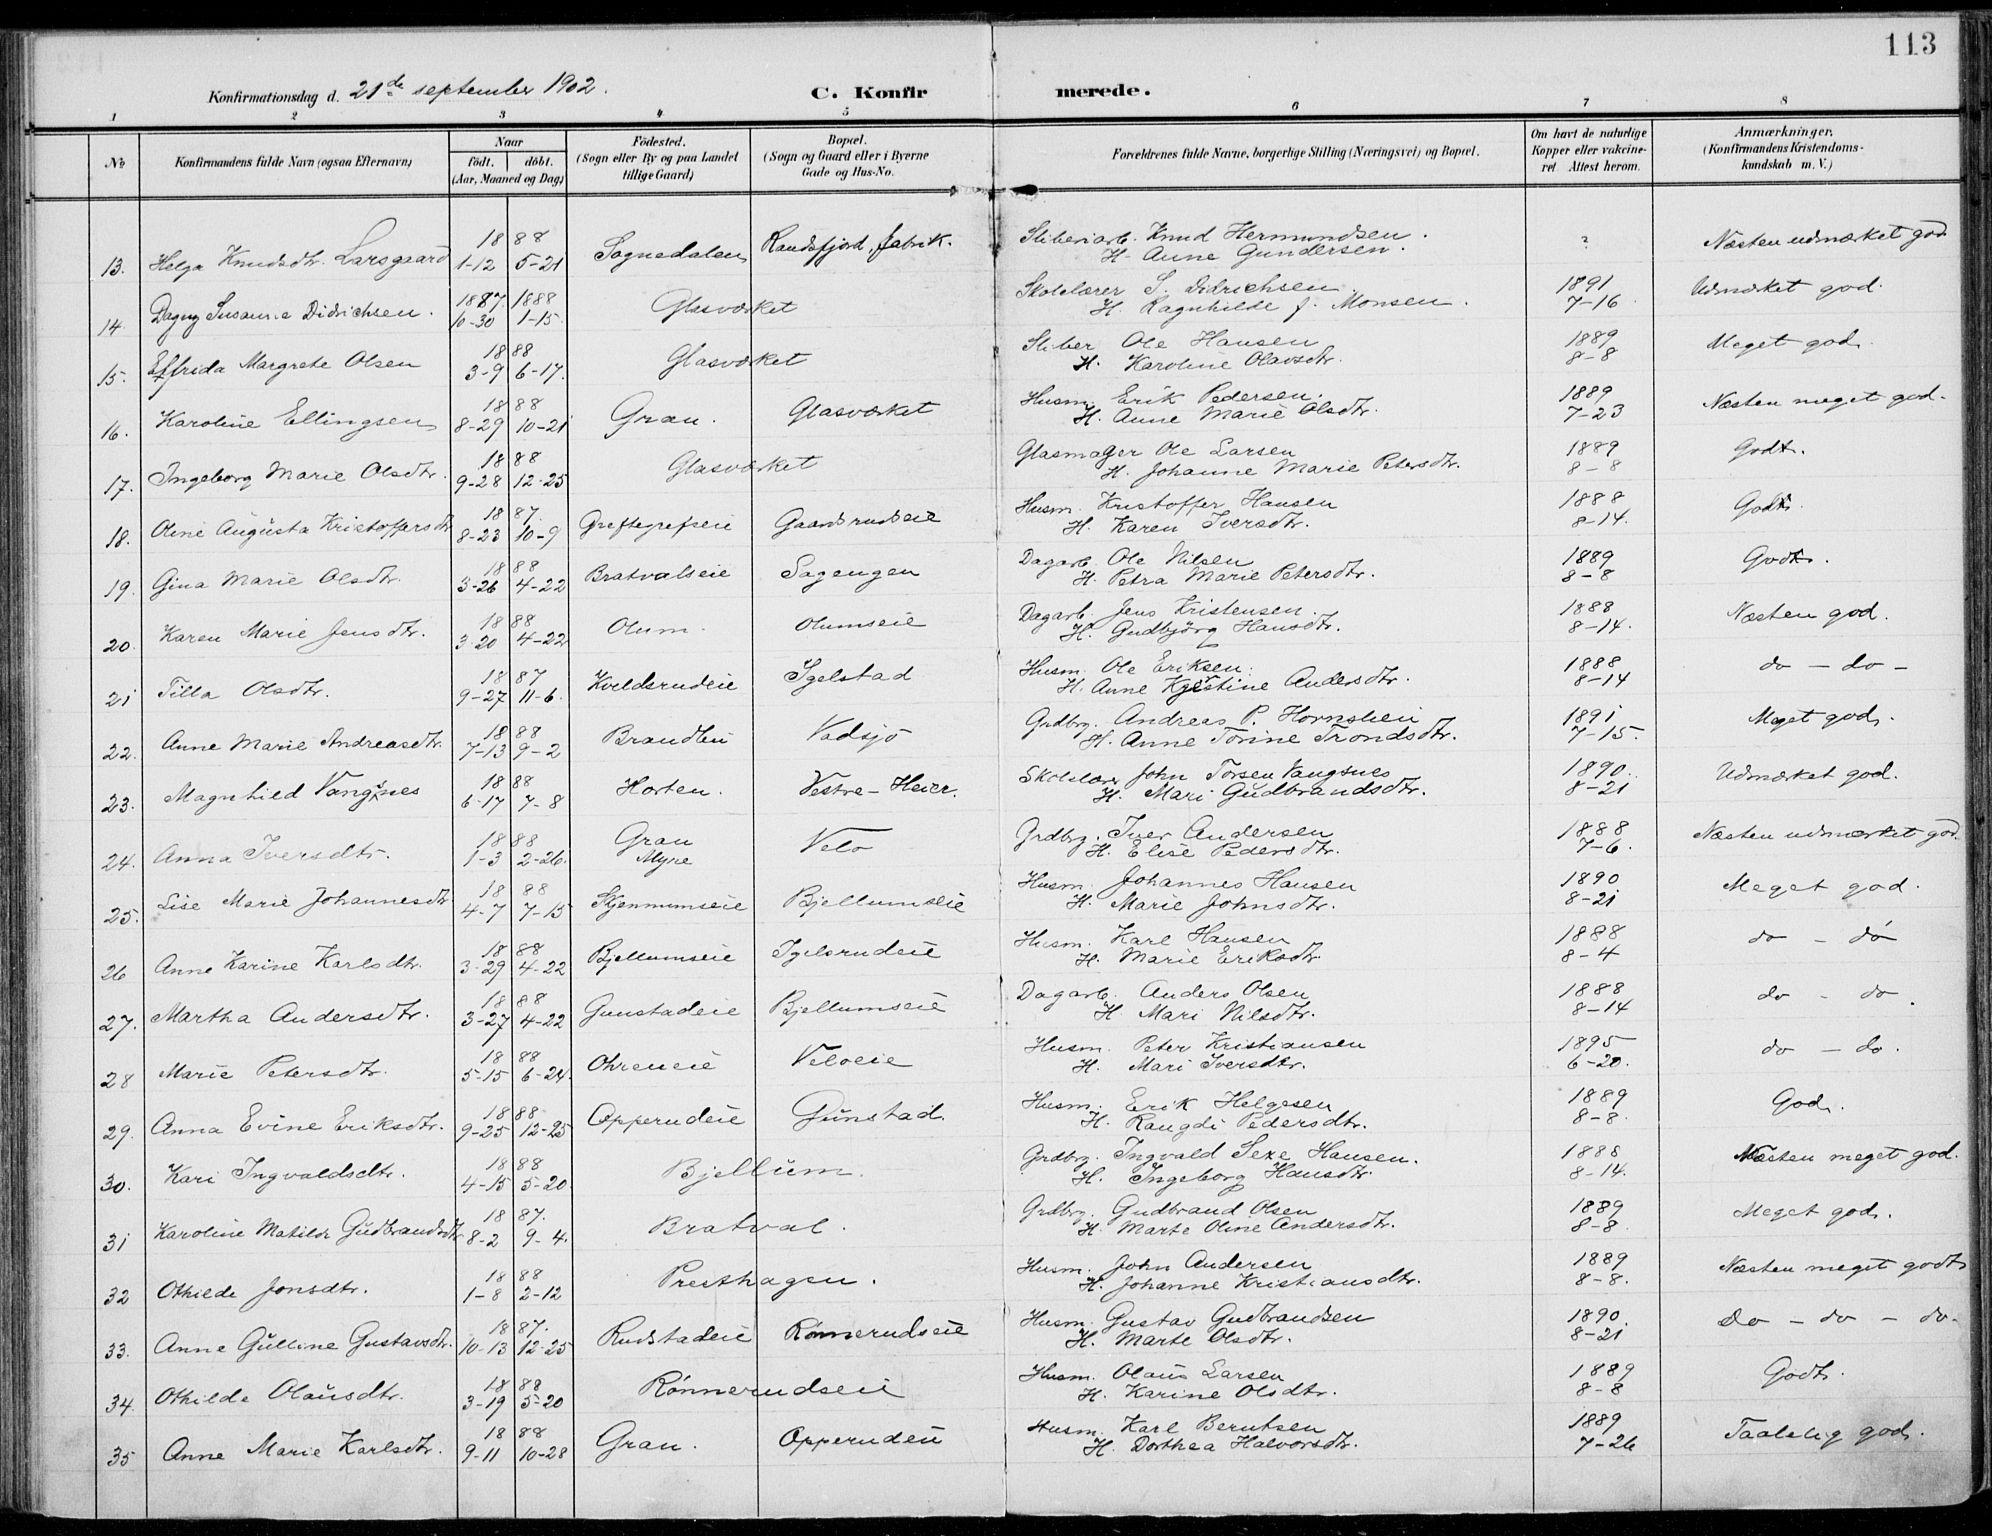 113
Konfirmationsdag d. 21de september 1902.
C. Konfirmerede.
1 2 3 4 5 6 7 8
No
Konfirmandens fulde Navn (ogsaa Efternavn)
Naar
födt. döbt.
(Aar, Maaned og Dag)
Födested.
(Sogn eller By og paa Landet
tillige Gaard)
Bopæl.
(Sogn og Gaard eller i Byerne
Gade og Hus-No.
Forældrenes fulde Navne, borgerlige Stilling (Næringsvei) og Bopæl.
Om havt de naturlige
Kopper eller vakcine-
ret Attest herom.
Anmærkninger.
(Konfirmandens Kristendoms-
kundskab m. V.)
13. Helga Knudsdtr. Larsgaard 1888 1-12 5-21 Sognedalen Randsfjord fabrik. Sliberiarb. Knud Hermundsen. ? Næsten udmærket god
H. Anne Gundersen.
14. Dagny Susanne Didrichsen. 1887 10-30 1888 1-15. Glasværket Skolelærer S. Didrichsen. 1891 7-16 Udmærket god.
H. Ragnhilde f. Monsen.
15. Elfrida Margrete Olsen 1888 3-9 6-17. Glasværket Sliber Ole Hansen 1889 8-8 Meget god.
H. Karoline Olavsdtr.
16. Karoline Ellingsen 1888 8-29 10-21 Gran. Glasværket Husm. Erik Pedersen. 1889 7-23 Næsten meget god.
H. Anne Marie Olsdtr.
17. Ingeborg Marie Olsdtr. 1888 9-28 12-25 Glasværket Glasmager Ole Larsen 1889 8-8 Godt.
H. Johanne Marie Petersdtr.
18. Oline Augusta Kristoffersdtr 1887. 8-23 10-9 Greftegrefseie Gaardsrudseie Husm. Kristoffer Hansen 1888 8-14. Godt.
H. Karen Iversdtr.
19. Gina Marie Olsdtr. 1888 3-26 4-22 Bratvalseie Sagengen Dagarb. Ole Nilsen 1889 8-8 Godt.
H. Petra Marie Petersdtr.
20. Karen Marie Jensdtr. 1888 3-20 4-22 Olum. Olumseie Dagarb. Jens Kristensen. 1888 8-14. Næsten god.
H. Gudbjörg Hansdtr.
21 Tilla Olsdtr. 1887 9-27 11-6. Kveldsrudeie Igelstad Husm. Ole Eriksen. 1888 8-14 do - do -
H. Anne Kjerstine Andersdtr.
22. Anne Marie Andreasdtr. 1888 7-13 9-2 Brandbu Vadsjö Grdbrg. Andreas P. Hornslien 1891 7-15. Meget god.
H. Anne Torine Trondsdtr.
23. Magnhild Vangsnes 1888 6-17 7-8 Horten. Vestre-Heier. Skolelærer John Torsen Vangsnes 1890. 8-21 Udmærket god.
H. Mari Gudbrandsdtr.
24. Anna Iversdtr. 1888 1-3 2-26. Gran Myre Velo Grdbrg. Iver Andersen 1888 7-6. Næsten udmærket god.
H. Elise Pedersdtr.
25. Lise Marie Johannesdtr 1888 4-7 7-15 Skjenmumseie Bjellumseie Husm. Johannes Hansen 1890 8-21 Meget god.
H. Marie Johnsdtr.
26 Anne Karine Karlsdtr. 1888 3-29 4-22 Bjellumseie Igelsrudeie Husm. Karl Hansen 1888 8-4 do - do
H. Marie Eriksdtr
27. Martha Andersdtr. 1888 3-27 4-22 Gunstadeie Bjellumseie Dagarb. Anders Olsen 1888 8-14 do - do.
H. Mari Nilsdtr.
28 Marie Petersdtr. 1888 5-15 6-24. Ohreneie Veloeie Husm. Peter Kristiansen 1895 6-20. do - do.
H. Mari Iversdtr.
29. Anna Evine Eriksdtr. 1888 9-25 12-25 Opperudeie Gunstad Husm. Erik Helgesen 1889 8-8. God.
H. Rangdi Pedersdtr.
30. Kari Ingvaldsdtr. 1888 4-15 5-20. Bjellum. Grdbrg. Ingvald Sexe Hansen. 1888 8-14. Næsten meget god.
H. Ingeborg Hansdtr
31 Karoline Matilde Gudbrandsdtr 1887. 8-2 9-4. Bratval. Grdbrg. Gudbrand Olsen 1889 8-8. Meget god.
H. Marte Oline Andersdtr.
32 Othilde Jonsdtr. 1888 1-8 2-12 Presthagen. Husm. John Andersen 1889 8-8. Næsten meget godt
H. Johanne Kristiansdtr.
33. Anne Gulline Gustavsdtr. 1887. 10-13 12-25 Rudstadeie Rönnerudseie Husm. Gustav Gudbrandsen 1890. 8-21 Do - do - do.
H. Marte Olsdtr.
34. Othilde Olausdtr. 1888 3-19 5-20 Rönnerudseie Husm. Olaus Larsen 1889 8-8 Godt.
H. Karine Olsdtr.
35 Anne Marie Karlsdtr. 1888 9-11 10-28 Gran. Opperudeie Husm. Karl Berntsen 1889 7-26 Taalelig god.
H. Dorthea Halvorsdtr.